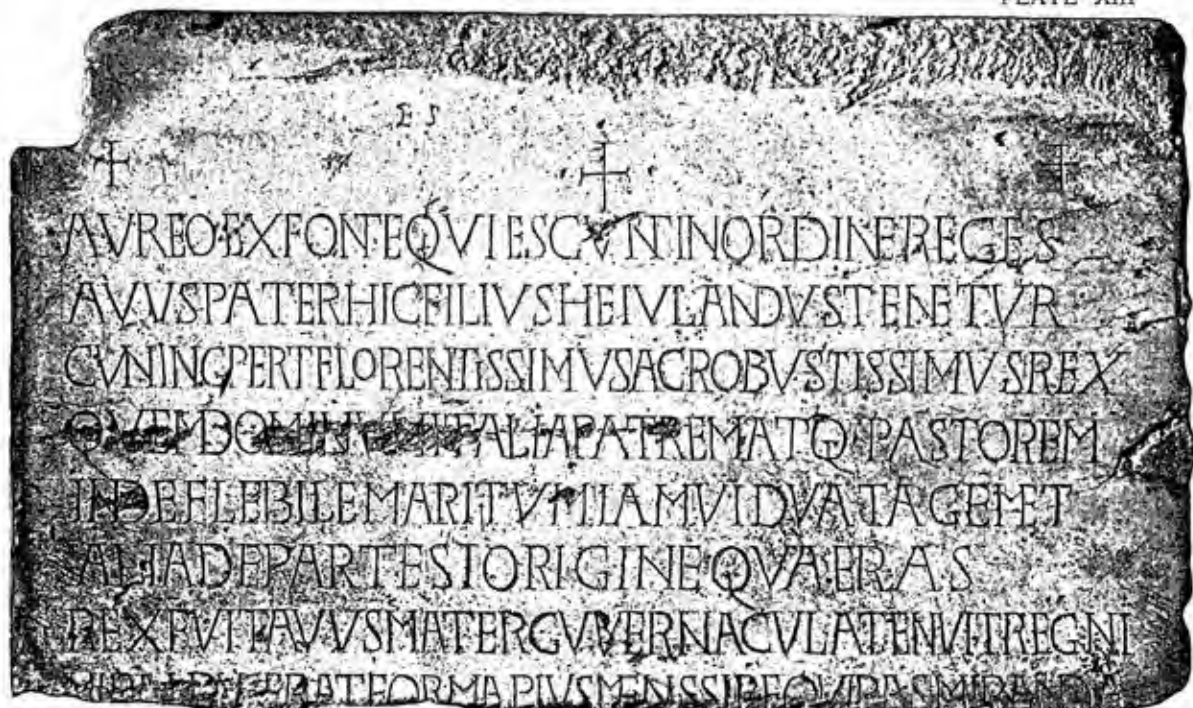 PLATE XIII
ES
AVREO EX FONTE QVIESCVNT IN ORDINE REGES
AVVS PATER HIC FILIVS HEIVLANDVS TENETVR
CVNINGPERT FLORENTISSIMVS AC ROBVSTISSIMVS REX
QVEM DOMINVM ITALIA PATREM ATQ PASTOREM
INDE FLEBILE MARITVM IAM VIDVATA GEMET
ALIA DE PARTE SI ORIGINE QVAERAS
REX FVIT AVVS MATER GVVERNACVLA TENVIT REGNI
ERAT FORMA PIVS MENS SI REQVIRAS MIRANDA